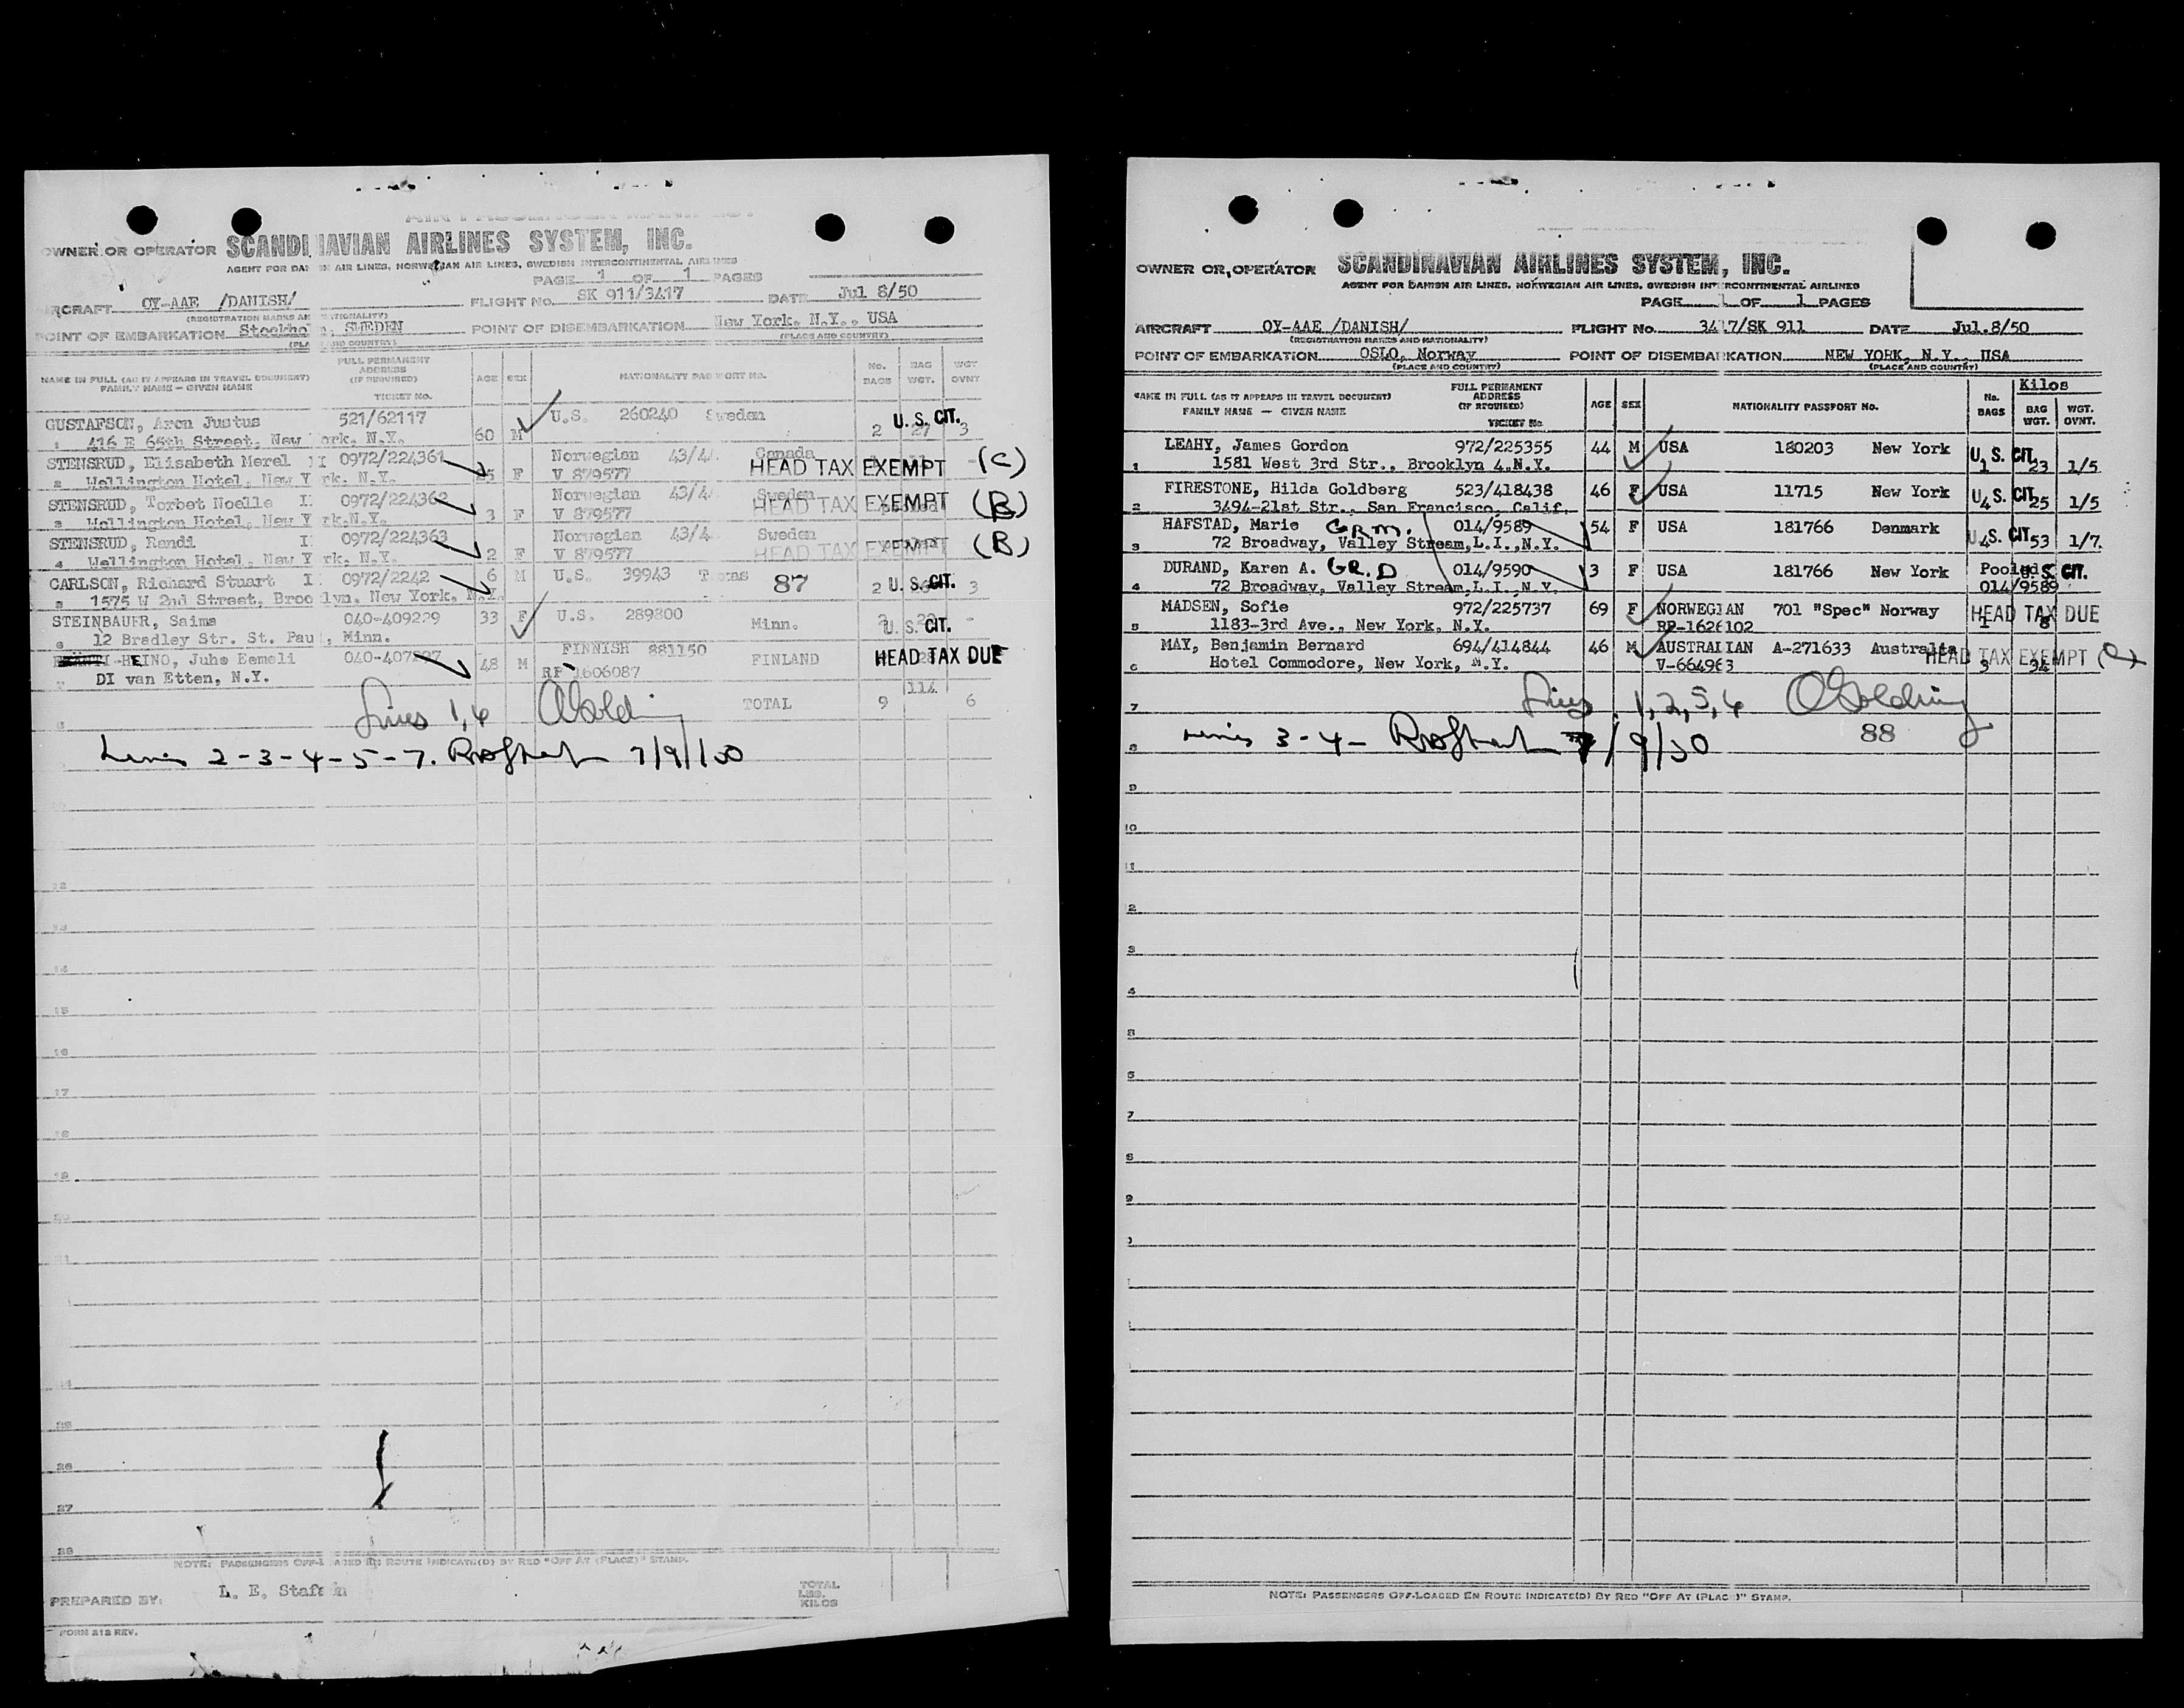 OWNER OR OPERATOR SCANDINAVIAN AIRLINES SYSTEM, INC.
AGENT FOR DANISH AIR LINES, NORWEGIAN AIR LINES, SWEDISH INTERCONTINENTAL AIRLINES
PAGE 1 OF 1 PAGES
AIRCRAFT OY-AAE /DANISH/ FLIGHT No. SK 911/3417 DATE Jul 8/50
(REGISTRATION MARKS AND NATIONALITY)
POINT OF EMBARKATION Stockholm, SWEDEN POINT OF DISEMBARKATION New York, N.Y., USA
(PLACE AND COUNTRY) (PLACE AND COUNTRY)
NAME IN FULL (AS IT APPEARS IN TRAVEL DOCUMENT) FAMILY NAME — GIVEN NAME FULL PERMANENT ADDRESS (IF REQUIRED) TICKET No. AGE SEX NATIONALITY PASSPORT No. No. BAGS BAG WGT. WGT OVNT
GUSTAFSON, Aron Justus 521/62117 U.S. 260240 Sweden U.S. CIT.
1 416 E 65th Street, New York, N.Y. 60 M 2 27 3
STENSRUD, Elisabeth Merel 0972/224361 Norwegian 43/4 Canada
2 Wellington Hotel, New York. N.Y. F V 879577 HEAD TAX EXEMPT (C)
STENSRUD, Torbet Noelle 0972/224362 Norwegian 43/4 Sweden
3 Wellington Hotel, New York.N.Y. 3 F V 879577 HEAD TAX EXEMPT (B)
STENSRUD, Randi 0972/224363 Norwegian 43/4 Sweden
4 Wellington Hotel, New York. N.Y. 2 F V 879577 HEAD TAX EXEMPT (B)
CARLSON, Richard Stuart 0972/2242 6 M U.S. 39943 87 2 U.S. CIT. 3
5 1575 W 2nd Street, Brooklyn, New York, N.Y.
STEINBAUER, Saima 040-409229 33 F U.S. 289800 Minn. U.S. CIT. -
6 12 Bradley Str. St. Paul, Minn.
-HEINO, Juho Eemeli 48 M FINNISH 881150 FINLAND HEAD TAX DUE
7 DI van Etten, N.Y. RP 1606087
Lines 1,6 OGolding TOTAL 9 114 6
Lines 2-3-4-5-7. 7/9/50
12
13
14
15
16
17
18
19
20
21
24
25
26
27
28
NOTE: PASSENGERS OFF-LOADED EN ROUTE INDICATE(D) BY RED "OFF AT (PLACE)" STAMP.
PREPARED BY: L. E. TOTAL LBS. KILOS
FORM 212 REV.
OWNER OR OPERATOR SCANDINAVIAN AIRLINES SYSTEM, INC.
AGENT FOR DANISH AIR LINES, NORWEGIAN AIR LINES, SWEDISH INTERCONTINENTAL AIRLINES
PAGE 1 OF 1 PAGES
AIRCRAFT OY-AAE /DANISH/ FLIGHT No. 3417/SK 911 DATE Jul.8/50
(REGISTRATION MARKS AND NATIONALITY)
POINT OF EMBARKATION OSLO, Norway POINT OF DISEMBARKATION NEW YORK, N.Y., USA
(PLACE AND COUNTRY) (PLACE AND COUNTRY)
NAME IN FULL (AS IT APPEARS IN TRAVEL DOCUMENT) FAMILY NAME — GIVEN NAME FULL PERMANENT ADDRESS (IF REQUIRED) TICKET No. AGE SEX NATIONALITY PASSPORT No. No. BAGS Kilos BAG WGT. WGT. OVNT.
LEAHY, James Gordon 972/225355 44 M USA 180203 New York U.S. CIT.
1 1581 West 3rd Str., Brooklyn 4.N.Y. 1 23 1/5
FIRESTONE, Hilda Goldberg 523/418438 46 F USA 11715 New York U.S. CIT.
2 3494-21st Str., San Francisco, Calif. 4 25 1/5
HAFSTAD, Marie GRM. 014/9589 54 F USA 181766 Denmark U.S. CIT.
3 72 Broadway, Valley Stream,L.I.,N.Y. 4 53 1/7.
DURAND, Karen A. GR.D 014/9590 3 F USA 181766 New York Pooled U.S. CIT.
4 72 Broadway, Valley Stream,L.I.,N.Y. 014/9589
MADSEN, Sofie 972/225737 69 F NORWEGIAN 701 "Spec" Norway HEAD TAX DUE
5 1183-3rd Ave., New York, N.Y. RP-1626102 1 8
MAY, Benjamin Bernard 694/414844 46 M AUSTRALIAN A-271633 Australia HEAD TAX EXEMPT (C)
6 Hotel Commodore, New York, N.Y. V-664963 3 34
7 Lines 1,2,5,6 OGolding
8 Lines 3-4- 7/9/50 88
9
10
11
2
3
4
5
7
8
9
NOTE: PASSENGERS OFF-LOADED EN ROUTE INDICATE(D) BY RED "OFF AT (PLACE)" STAMP.